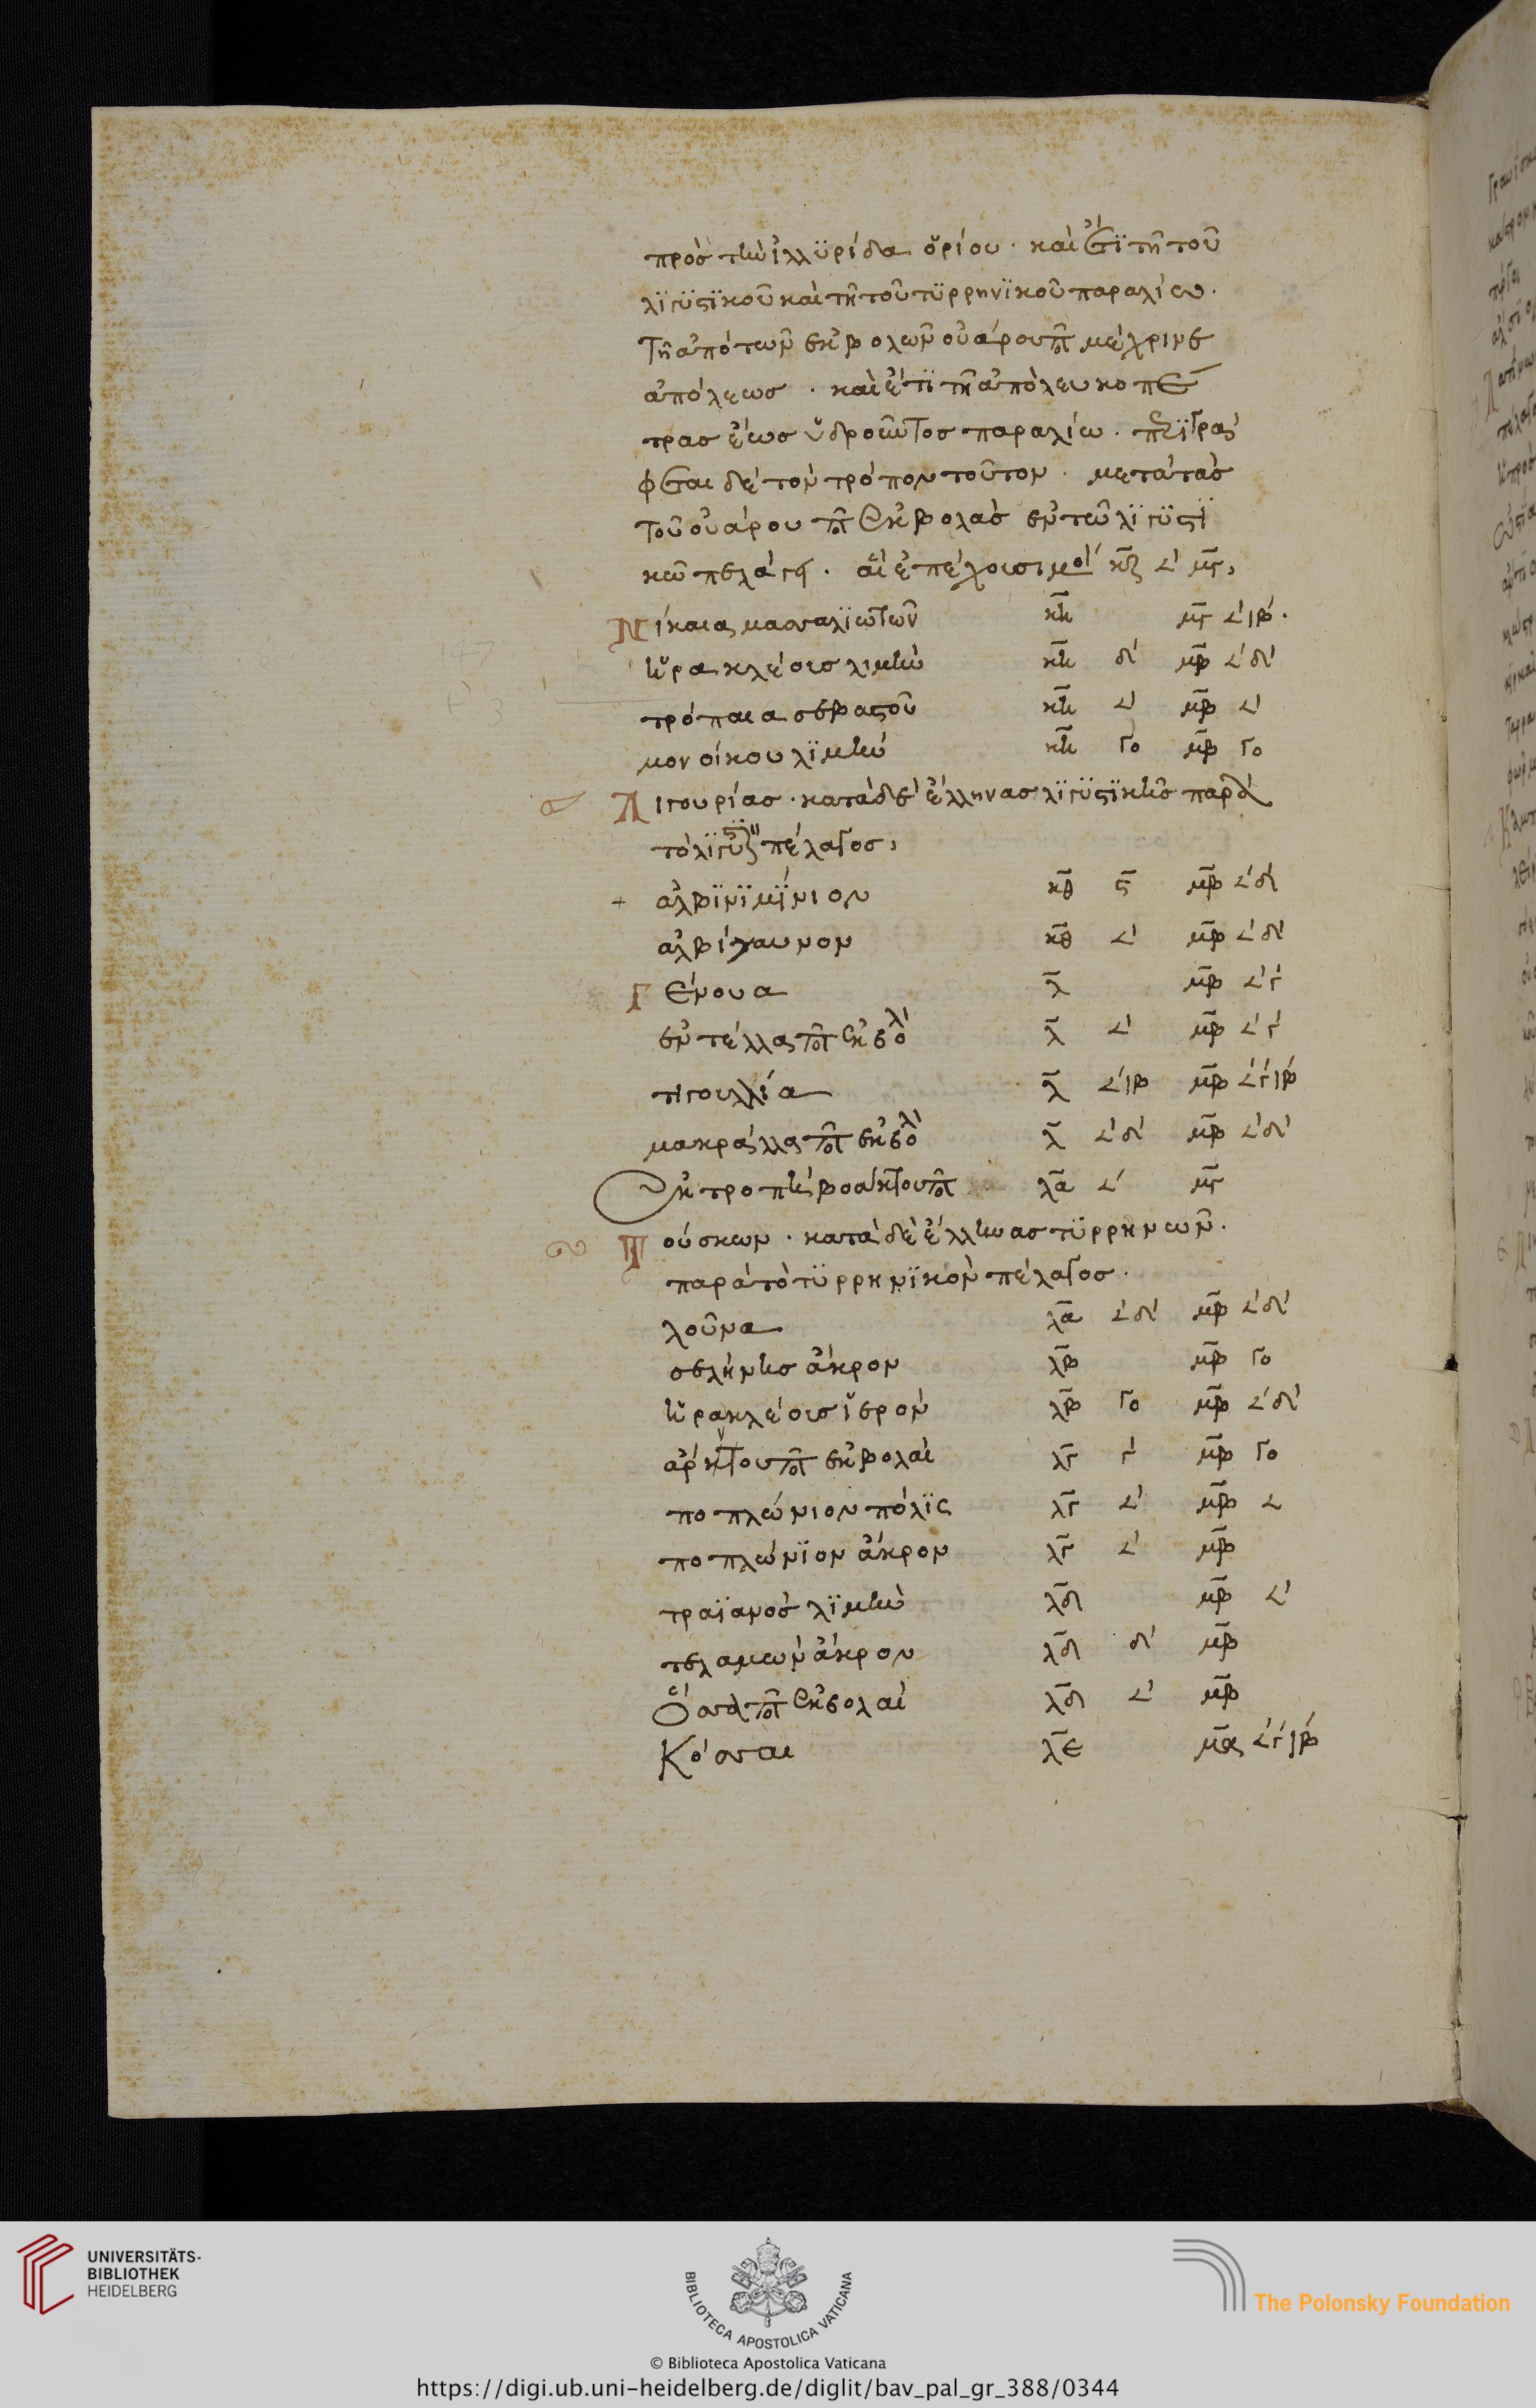 πρὸς τὴν ἰλλϋρίδα ὁρίου · καὶ ἔτϊ τῆ τοῦ
λϊγϋςϊκοῦ καὶ τῆ τοῦ τϋρρηνϊκοῦ παραλίω ·
τῆ ἀπὸ τῶν ἐκβολῶν οὐάρου ποτ μέχρι νε
απόλεως · καὶ ἔτϊ τῆ ἀπὸ λευκοπέ
τρας ἕως ὑδροῦντος παραλίω · περϊγρά
φεται δὲ τὸν τρόπον τοῦτον · μετὰ τὰς
τοῦ οὐάρου ποτ ἐκβολὰς ἐν τῶ λϊγϋςϊ
κῶ πελάγει · αἳ ἐπέχουσι μοί κζ ∠ μγ,
Νίκαια μασσαλϊωτῶν κη μγ ∠ιβ ·
ἡρακλέους λιμήν κη δ μβ ∠δ
τρόπαια σεβαςοῦ κη ∠ μβ ∠
μονοίκου λϊμήν κη γο μβ γο
Λιγουρίας · κατὰ δὲ ἕλληνας λϊγϋςϊκῆς παρὰ
τὸ λϊγϋςϊ πέλαγος,
ἀλβϊνϊμϊνιον κθ ς μβ ∠δ
ἀλβίγαυνον κθ ∠ μβ ∠δ
Γένουα λ μβ ∠γ
ἐντέλλας ποτ ἐκβολ λ ∠ μβ ∠γ
τιγουλλία λ ∠ιβ μβ ∠γιβ
μακράλλας ποτ ἐκβολ λ ∠δ μβ ∠δ
λα ∠ μγ
Τούσκων · κατὰ δὲ ἕλληνας τϋρρηνῶν ·
παρὰ τὸ τϋρρηνϊκὸν πέλαγος ·
λοῦνα λα ∠δ μβ ∠δ
σελήνης ἄκρον λβ μβ γο
ἡρακλέους ἱερόν λβ γο μβ ∠δ
ἄρνου ποτ ἐκβολαί λγ γ μβ γο
ποπλώνιον πόλϊς λγ ∠ μβ ∠
ποπλώνϊον ἄκρον λγ ∠ μβ
τραϊανὸς λϊμήν λδ μβ ∠
τελαμὼν ἄκρον λδ δ μβ
Ὄσσα ποτ ἐκβολαί λδ ∠ μβ
Κόσσαι λε μα ∠γιβ
UNIVERSITÄTS-
BIBLIOTHEK
HEIDELBERG
BIBLIOTECA APOSTOLICA VATICANA
The Polonsky Foundation
© Biblioteca Apostolica Vaticana
https://digi.ub.uni-heidelberg.de/diglit/bav_pal_gr_388/0344